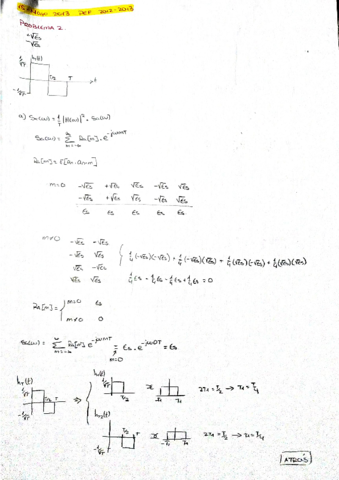 2013 DEF 2012-2013
PROBLEMA 2.
+√Es
-√Es
h(t)
1/√T
T/2 T t
-1/√T
a) Ss(ω) = 1/T |H(ω)|² · Sa(ω)
Sa(ω) = Σ Ra[m] · e^-jωmT
m=-∞
Ra[m] = E[an · an+m]
m=0 -√Es +√Es √Es -√Es √Es
-√Es +√Es √Es -√Es √Es
Es Es Es Es Es
m≠0 -√Es -√Es
-√Es √Es
√Es -√Es
√Es √Es
1/4 (-√Es)(-√Es) + 1/4 (-√Es)(√Es) + 1/4 (√Es)(-√Es) + 1/4 (√Es)(√Es)
1/4 Es - 1/4 Es - 1/4 Es + 1/4 Es = 0
Ra[m] = { m=0 Es
m≠0 0
Sa(ω) = Σ Ra[m] e^-jωmT = Es · e^-jω0T = Es
m=-∞ m=0
hT(t) 1/√T T/2 T -1/√T
h1(t) 1/√T T/2 -τ1 τ1 2τ1 = T/2 → τ1 = T/4
h2(t) T/2 T -1/√T -τ1 τ1 2τ1 = T/2 → τ1 = T/4
ATRÁS